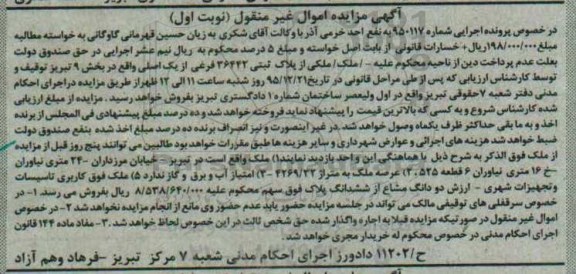 آگهی مزایده اموال غیر منقول (نوبت اول)
در خصوص پرونده اجرایی شماره ۹۵۰۱۱۷ به نفع احد خرمی آذر با وکالت آقای شکری به زیان حسین قهرمانی گاوگانی به خواسته مطالبه
مبلغ ۱۹۸/۰۰۰/۰۰۰ ریال + خسارات قانونی از بابت اصل خواسته و مبلغ ۵ درصد محکوم به ریال نیم عشر اجرایی در حق صندوق دولت
بعلت عدم پرداخت دین از ناحیه محکوم علیه - / ملک/ ملکی از پلاک ثبتی ۳۶۴۴۲ فرعی از یک اصلی واقع در بخش ۹ تبریز توقیف و
توسط کارشناس ارزیابی که پس از طی مراحل قانونی در تاریخ ۹۵/۱۲/۲۱ روز شنبه ساعت ۱۱ الی ۱۲ ظهر از طریق مزایده در اجرای احکام
مدنی دفتر شعبه ۷ حقوقی تبریز واقع در اول ولیعصر ساختمان شماره ۱ دادگستری تبریز بفروش خواهد رسید. مزایده از مبلغ ارزیابی
شده کارشناس شروع و به کسی که بالاترین قیمت را پیشنهاد نماید فروخته خواهد شد و ده درصد مبلغ پیشنهادی فی المجلس از برنده
اخذ و به ما بقی حداکثر ظرف یکماه وصول خواهد شد. در غیر اینصورت و نیز انصراف برنده ده درصد مبلغ اخذ شده بنفع صندوق دولت
ضبط خواهد شد هزینه های اجرائی و عوارض شهرداری و سایر هزینه ها طبق مقررات خواهد بود طالبین می توانند پنج روز قبل از مزایده
از ملک فوق الذکر به شرح ذیل با هماهنگی این واحد بازدید نمایند ۱) ملک واقع است در تبریز - خیابان مرزداران -۲۴ متری نیاوران
-خ ۱۶ متری نیاوران ۶ قطعه ۵۲۵، ۲) عرصه ملک به متراژ ۴۲۶۹/۲۲ ۳) امتیاز آب و برق و گاز ندارد ۵) ملک فوق کاربری تاسیسات
و تجهیزات شهری - ارزش دو دانگ مشاع از ششدانگ پلاک فوق سهم محکوم علیه ۸/۵۳۸/۶۴۰/۰۰۰ ریال بفروش می رسد. ۱- در
خصوص سرقفلی های توقیفی مالک می تواند در جلسه مزایده حضور یابد عدم حضور وی مانع از انجام مزایده نخواهد شد ۲- در خصوص
اموال غیر منقول در صورتیکه مزایده قبلا به اجاره واگذار شده حق شخص ثالث در این خصوص لحاظ خواهد شد. ۳- مفاد ماده ۱۴۴ قانون
اجرای احکام مدنی در خصوص محکوم له خریدار مجری خواهد شد.
ح/۱۱۲۰۲ دادورز اجرای احکام مدنی شعبه ۷ مرکز تبریز -فرهاد وهم آزاد